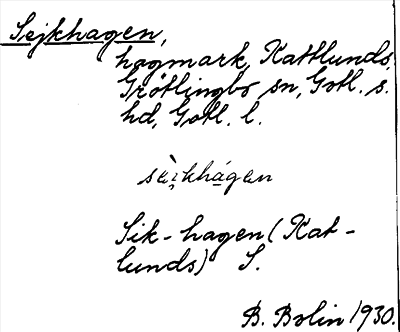 Sejkhagen,
hagmark, Kattlunds,
Grötlingbo sn, Gotl. s.
hd, Gotl. l.
khágen
Sik-hagen (Kat-
lunds) S.
B. Bolin 1930.